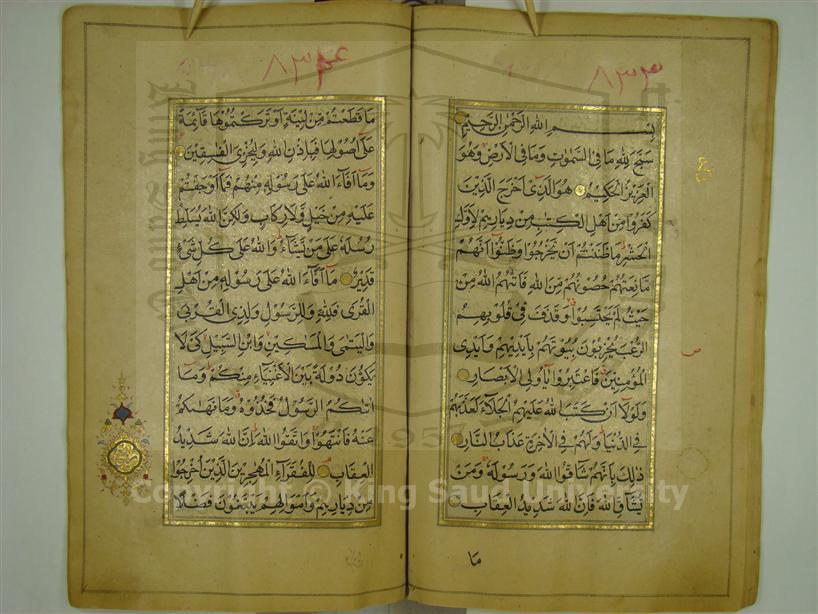 ٨٣٣
بسم الله الرحمن الرحيم
سبح لله ما في السموت وما في الارض وهو
العزيز الحكيم هو الذي اخرج الذين
كفروا من اهل الكتب من ديارهم لاول
الحشر ما ظننتم ان يخرجوا وظنوا انهم
مانعتهم حصونهم من الله فاتهم الله من
حيث لم يحتسبوا وقذف في قلوبهم
الرعب يخربون بيوتهم بايديهم وايدي
المؤمنين فاعتبروا ياولي الابصار
ولولا ان كتب الله عليهم الجلاء لعذبهم
في الدنيا ولهم في الاخرة عذاب النار
ذلك بانهم شاقوا الله ورسوله ومن
يشاق الله فان الله شديد العقاب
ما
٨٣٤
ما قطعتم من لينة او تركتموها قائمة
على اصولها فباذن الله وليخزي الفسقين
وما افاء الله على رسوله منهم فما اوجفتم
عليه من خيل ولا ركاب ولكن الله يسلط
رسله على من يشاء والله على كل شيء
قدير ما افاء الله على رسوله من اهل
القرى فلله وللرسول ولذي القربى
واليتمى والمسكين وابن السبيل كي لا
يكون دولة بين الاغنياء منكم وما
اتكم الرسول فخذوه وما نهاكم
عنه فانتهوا واتقوا الله ان الله شديد
العقاب للفقراء المهجرين الذين اخرجوا
من ديارهم واموالهم يبتغون فضلا
Copyright © King Saud University
1957